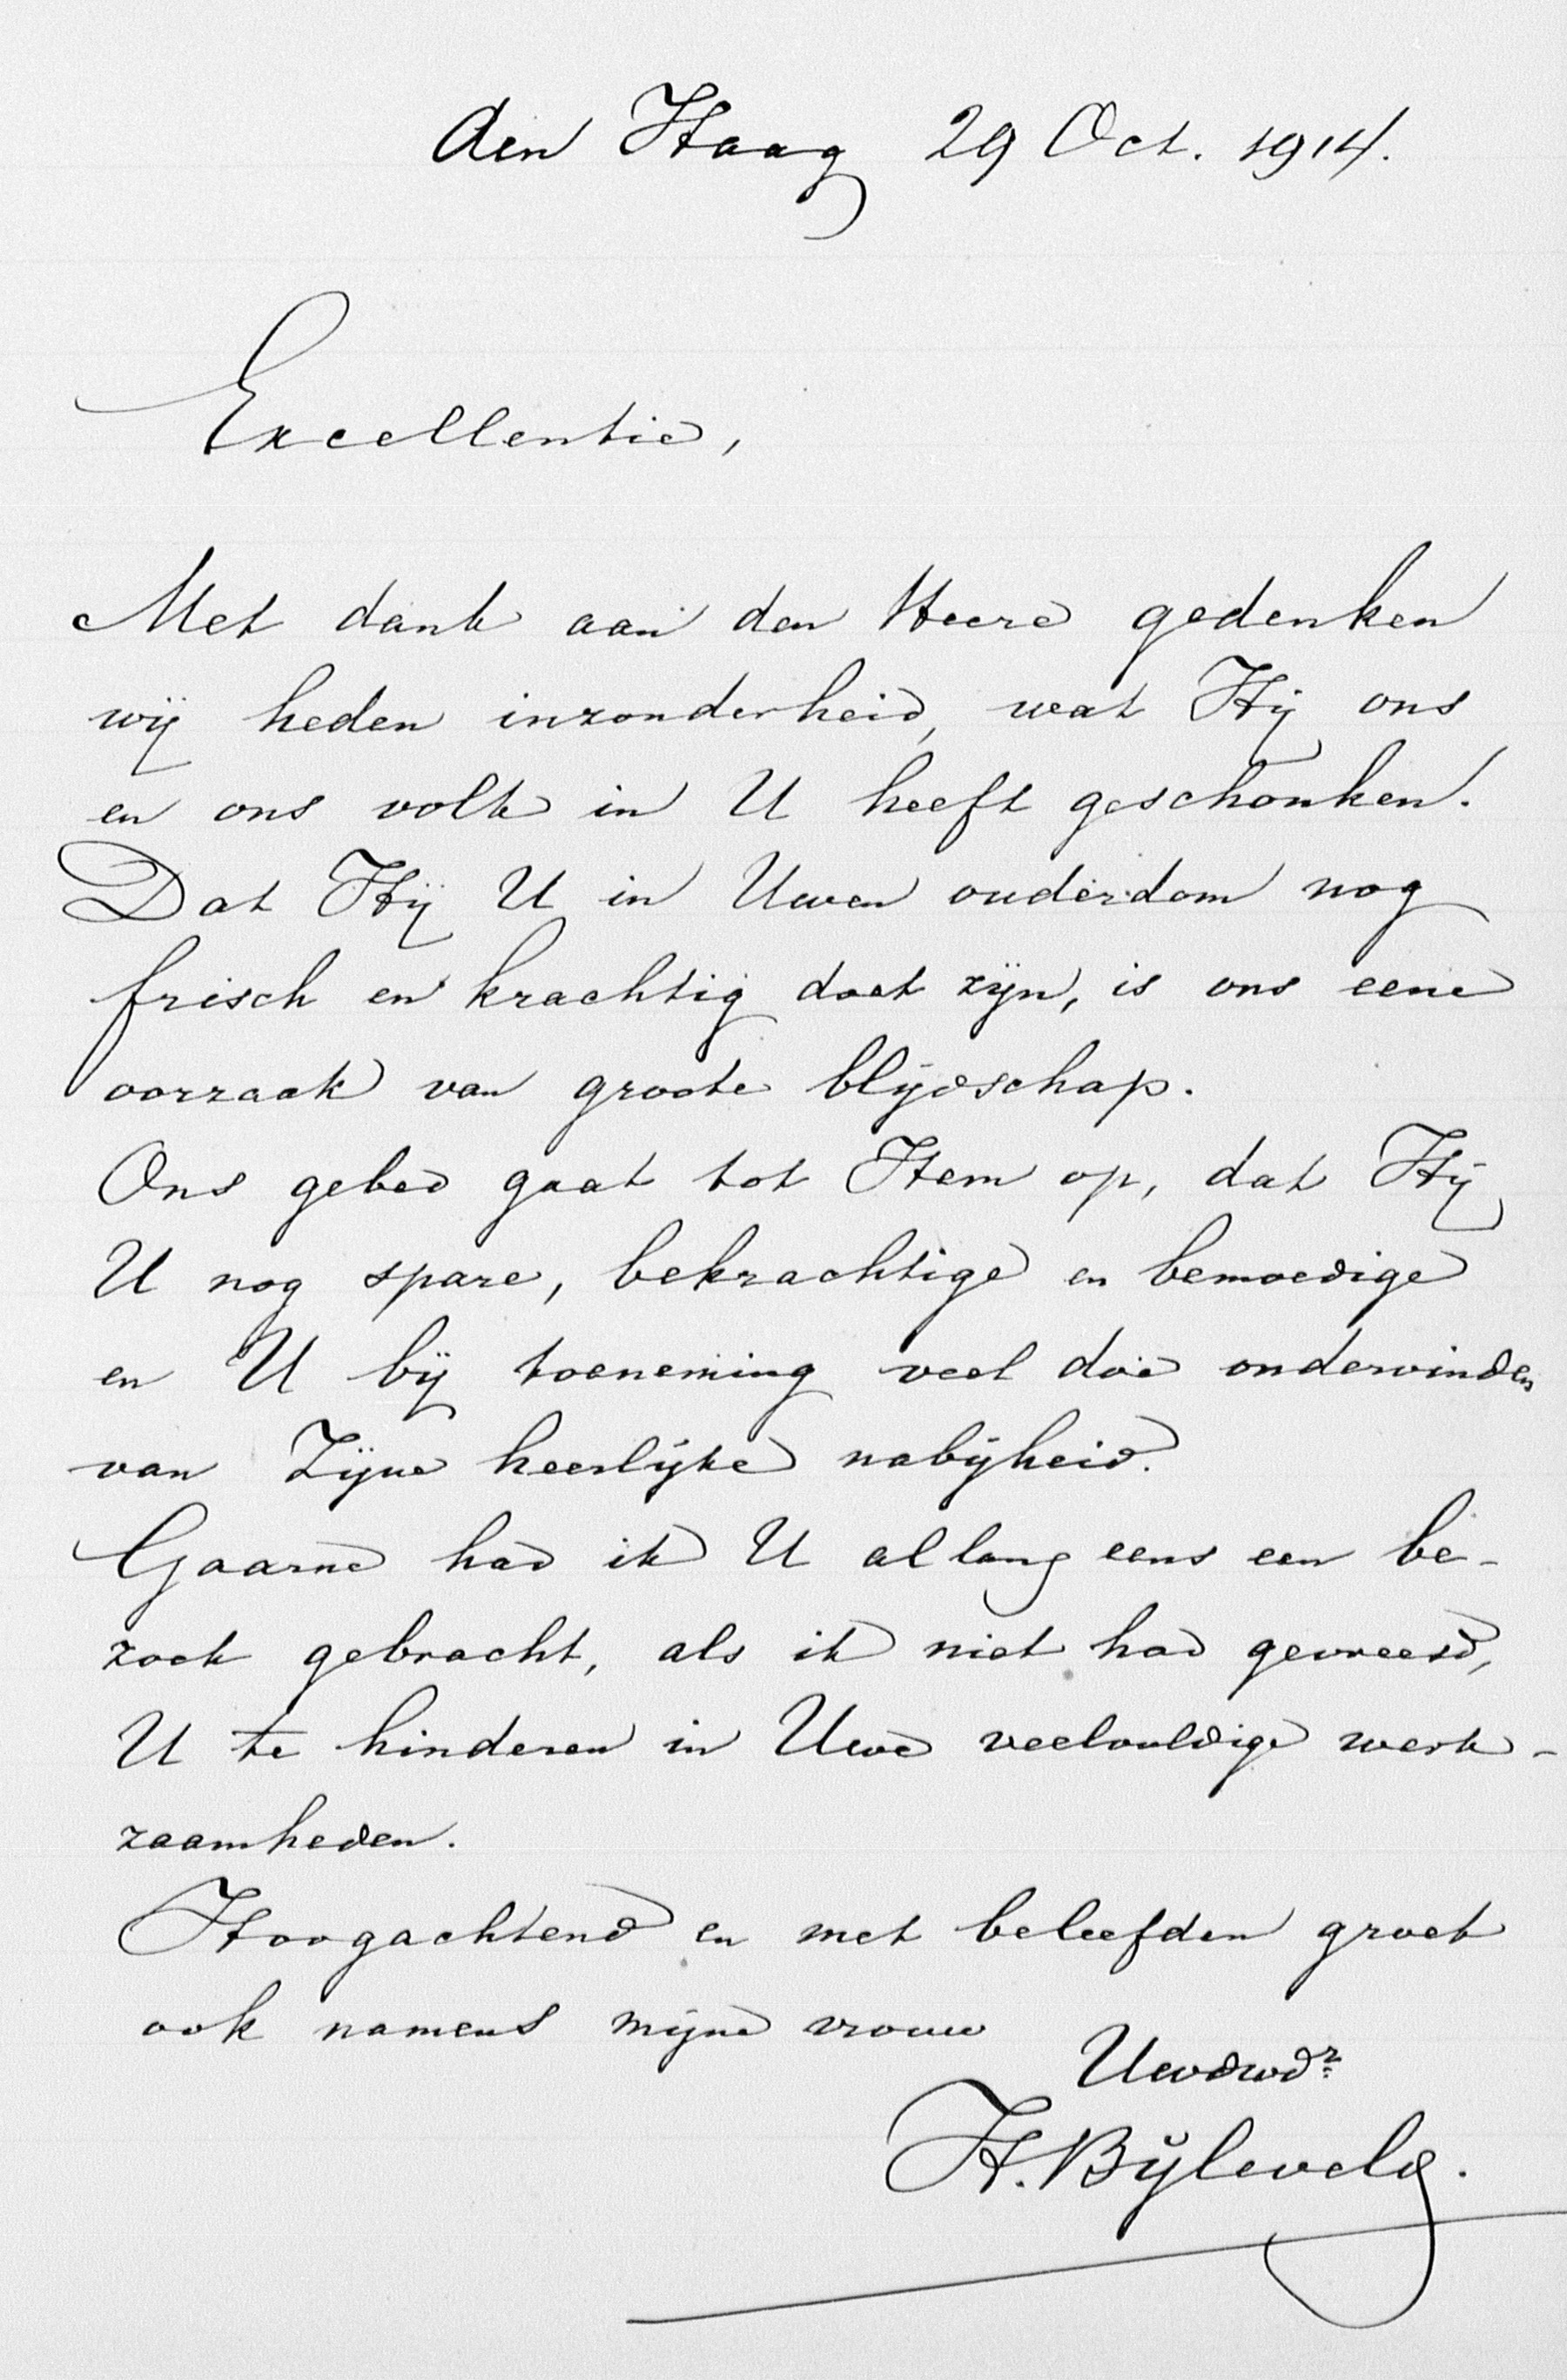 den Haag 29 Oct. 1914.
Excellentie,
Met dank aan den Heere gedenken
wij heden inzonderheid, wat Hij ons
en ons volk in U heeft geschonken.
Dat Hij U in Uwen ouderdom nog
frisch en krachtig doet zijn, is ons eene
oorzaak van groote blijdschap.
Ons gebed gaat tot Hem op, dat Hij
U nog spare, bekrachtige en bemoedige
en U bij toeneming veel doe ondervinden
van Zijne heerlijke nabijheid.
Gaarne had ik U al lang eens een be-
zoek gebracht, als ik niet had gevreesd,
U te hinderen in Uwe veelvuldige werk-
zaamheden.
Hoogachtend en met beleefden groet
ook namens mijne vrouw
Uwdwdr
H. Bijleveld.